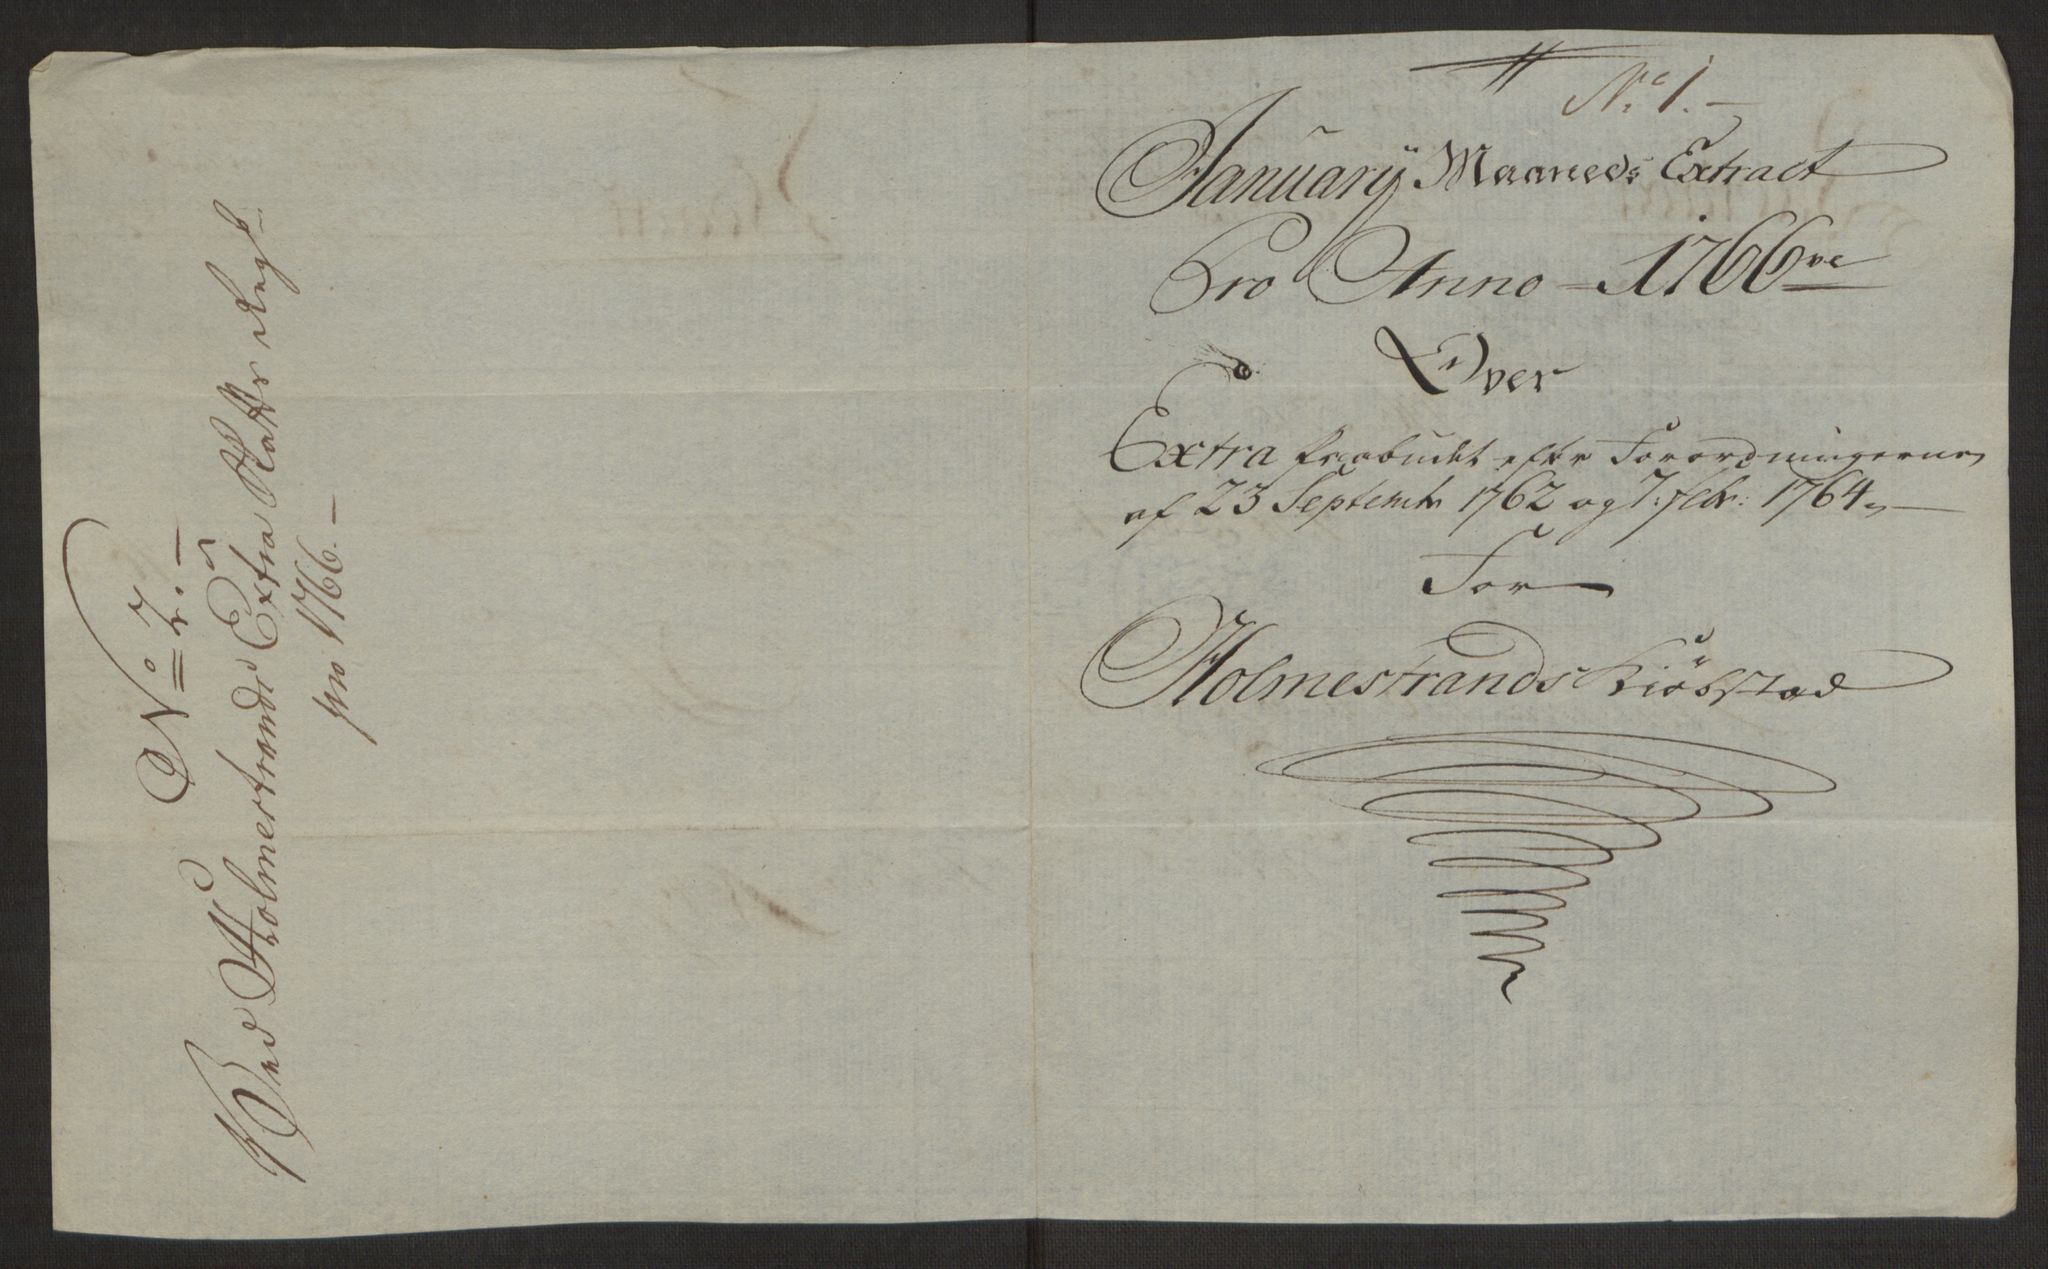 No 7. —
Ved Holmestrands Extra Skatts Regsk.
pro 1766. —
No 1. —
January Maaneds Extract
Pro Anno 1766ve
Over
Extra Paabudet efter Forordningerne
af 23 Septembr 1762 og 7: Febr: 1764
For
Holmestrands Kiöbstad